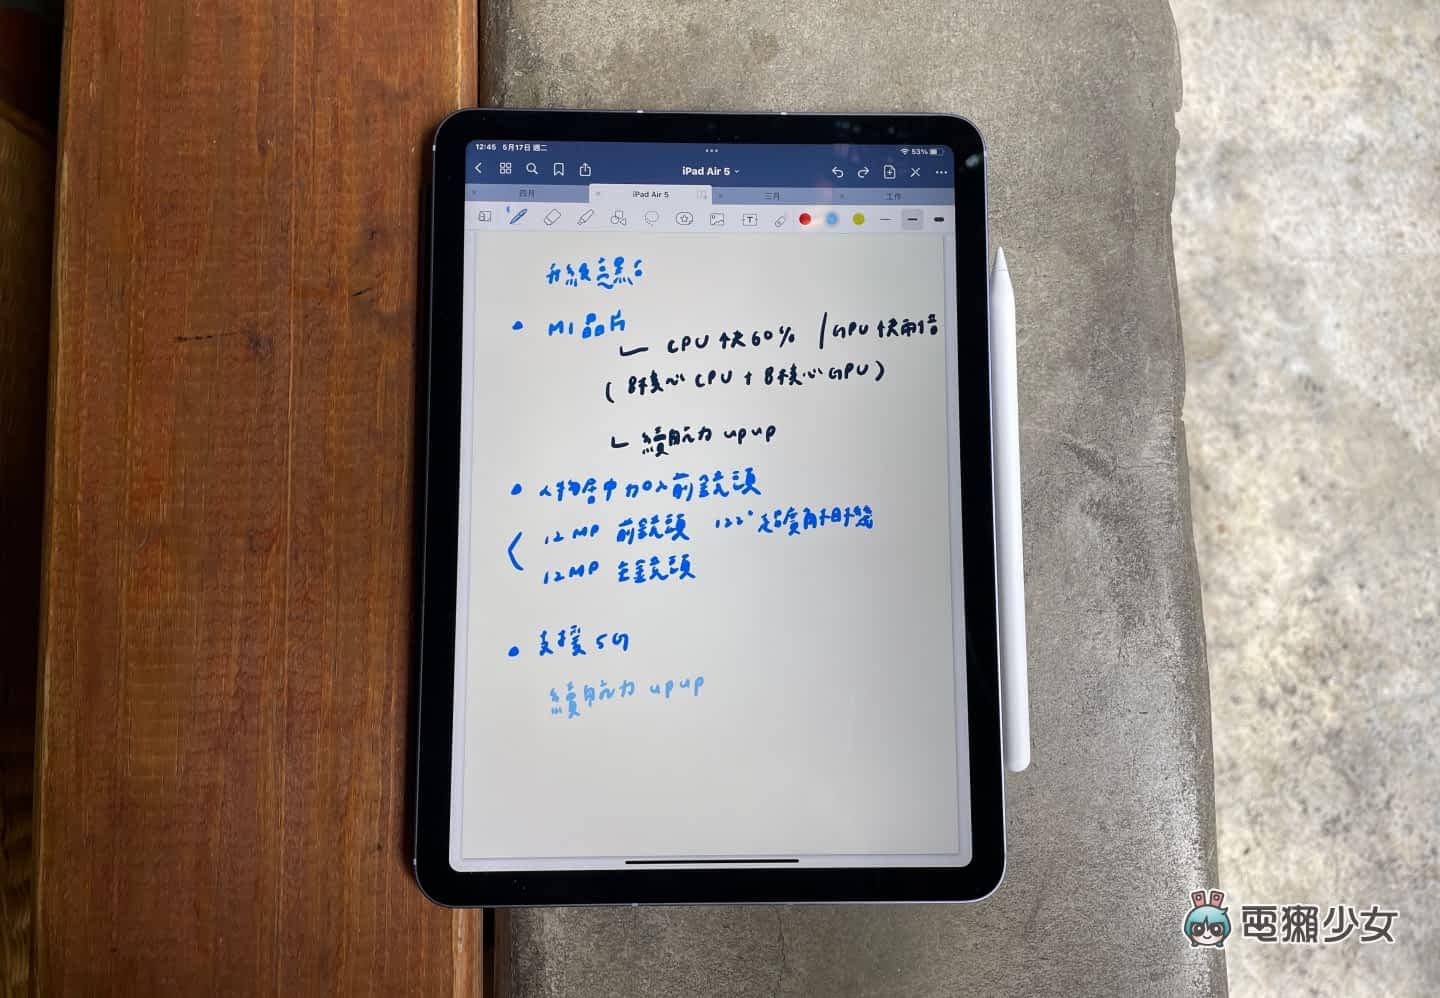 12:45 5月17日 週二
53%
iPad Air 5
四月 iPad Air 5 三月 工作
升級亮點
• M1晶片
CPU 快60% / GPU 快兩倍
(8核心 CPU + 8核心 GPU)
續航力 upup
• 人物居中加入前鏡頭
12MP 前鏡頭 122° 超廣角相機
12MP 主鏡頭
• 支援 5G
續航力 upup
電獺少女